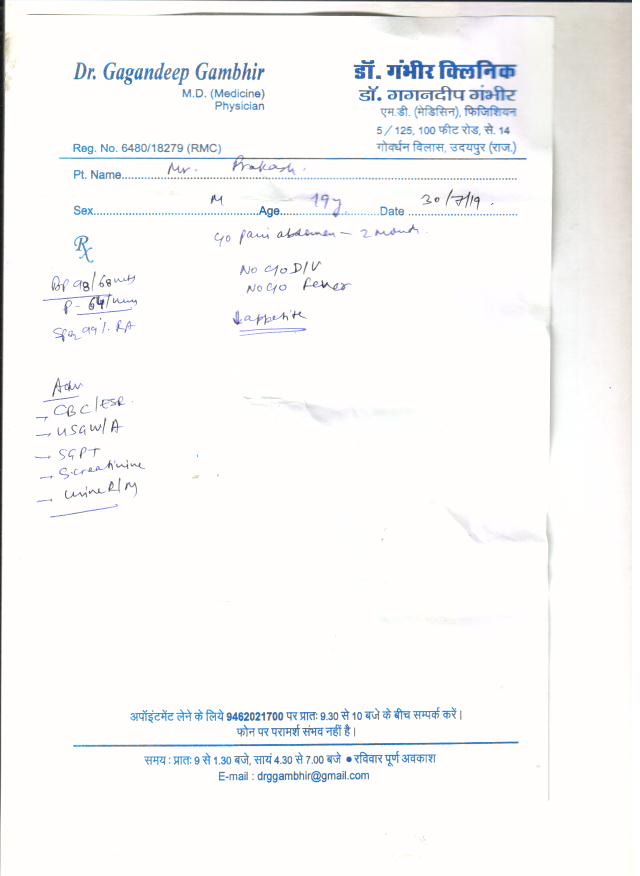 Dr. Gagandeep Gambhir
M.D. (Medicine)
Physician
Reg. No. 6480/18279 (RMC)
डॉ. गंभीर क्लिनिक
डॉ. गगनदीप गंभीर
एम.डी. (मेडिसिन), फिजिशियन
5/125, 100 फीट रोड, से. 14
गोवर्धन विलास, उदयपुर (राज.)
Pt. Name Mr. Prakash.
Sex M Age 19y Date 30/7/19.
Rx
c/o pain abdomen - 2 month.
No c/o D/V
No c/o fever
↓appetite
BP 98/68
P- 64/min
SpO2 99% RA
Adv
→ CBC/ESR
→ USG W/A
→ SGPT
→ S. creatinine
→ Urine R/M
अपॉइंटमेंट लेने के लिये 9462021700 पर प्रातः 9.30 से 10 बजे के बीच सम्पर्क करें।
फोन पर परामर्श संभव नहीं है।
समय : प्रातः 9 से 1.30 बजे, सायं 4.30 से 7.00 बजे ● रविवार पूर्ण अवकाश
E-mail : drggambhir@gmail.com